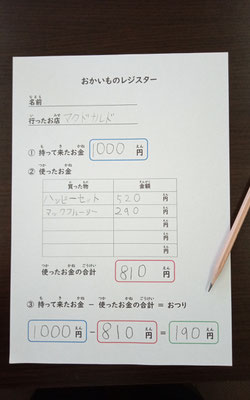 おかいものレジスター
なまえ
名前
行ったお店 マクドナルド
① 持って来たお金 1000 円
② 使ったお金
買った物 金額
ハッピーセット 520 円
マックフルーリー 290 円
円
円
円
使ったお金の合計 810 円
③ 持って来たお金 − 使ったお金の合計 = おつり
1000 円 − 810 円 = 190 円